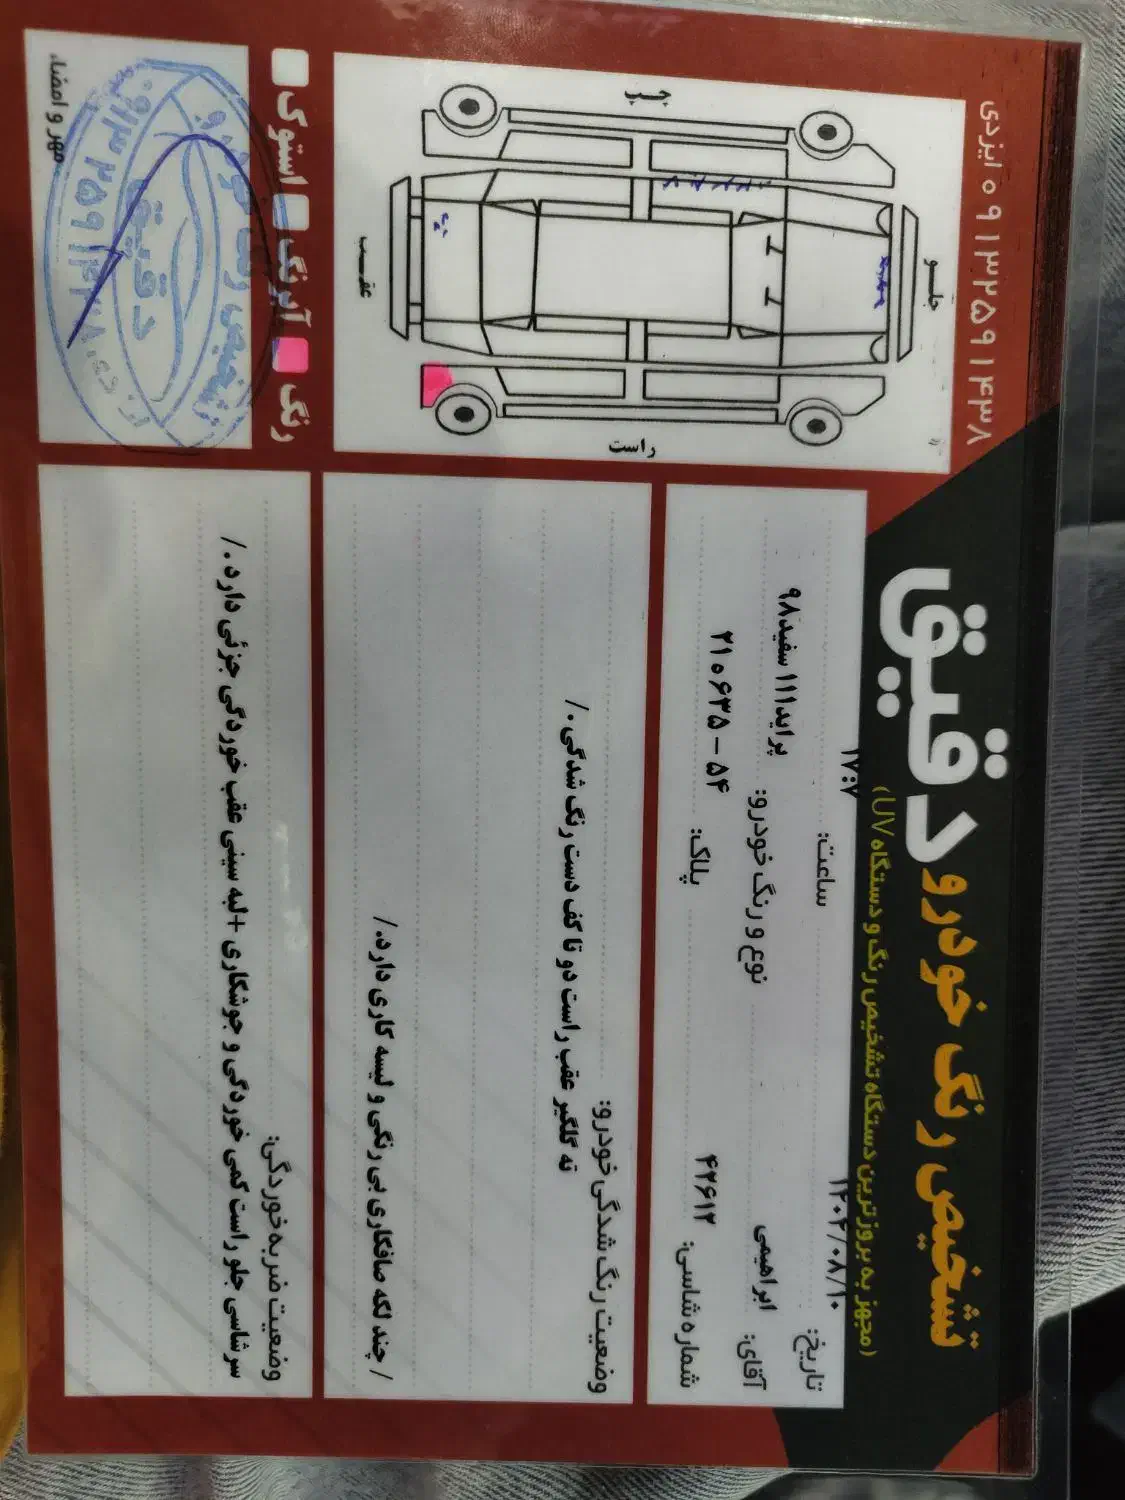 تشخیص رنگ خودرو دقیق
(مجهز به بروزترین دستگاه تشخیص رنگ و دستگاه UV)
ایزدی ۰۹۱۳۲۵۹۱۴۳۸
تاریخ: ۱۴۰۴/۰۸/۱۰ ساعت: ۱۷:۷
آقای: ابراهیمی نوع و رنگ خودرو: پراید۱۱۱ سفید۹۸
شماره شاسی: ۴۲۶۱۲ پلاک: ۵۴ - ۲۱۰۶۳۵
وضعیت رنگ شدگی خودرو:
ته گلگیر عقب راست دو تا کف دست رنگ شدگی./
/ چند لکه صافکاری بی رنگی و لیسه کاری دارد./
وضعیت ضربه خوردگی:
سرشاسی جلو راست کمی خوردگی و جوشکاری +لبه سینی عقب خوردگی جزئی دارد./
جلو
چپ
عقب
راست
رنگ آبرنگ استوک
مهر و امضاء
تشخیص رنگ خودرو
دقیق
۰۹۱۳۲۵۹۱۴۳۸